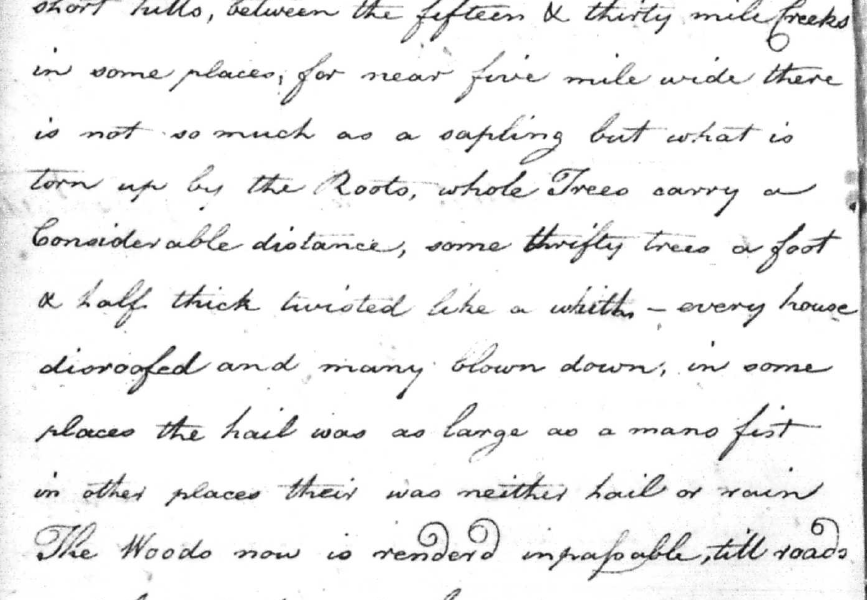 short hills, between the fifteen & thirty mile Creeks
in some places, for near five mile wide there
is not so much as a sapling but what is
torn up by the Roots, whole Trees carry a
Considerable distance, some thrifty trees a foot
& half thick twisted like a whith – every house
disroofed and many blown down, in some
places the hail was as large as a mans fist
in other places their was neither hail or rain
The Woods now is renderd inpassable, till roads